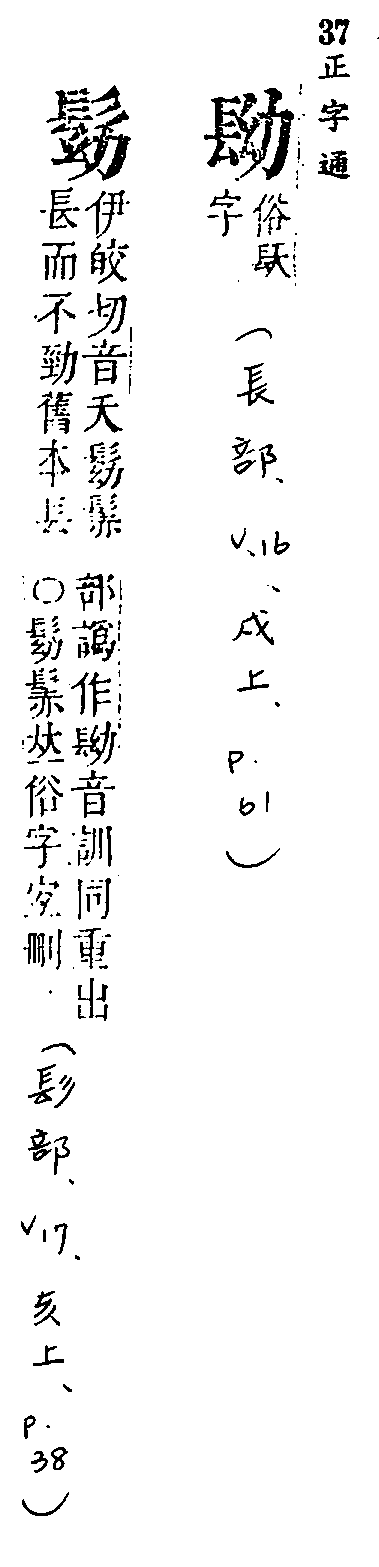 37正字通
俗镺
字
（長部、V.16、戌上、p.61）
伊皎切音夭
長而不勁舊本長
部譌作音訓同重出
○𠀤俗字宜刪
（髟部、V.17、亥上、p.38）